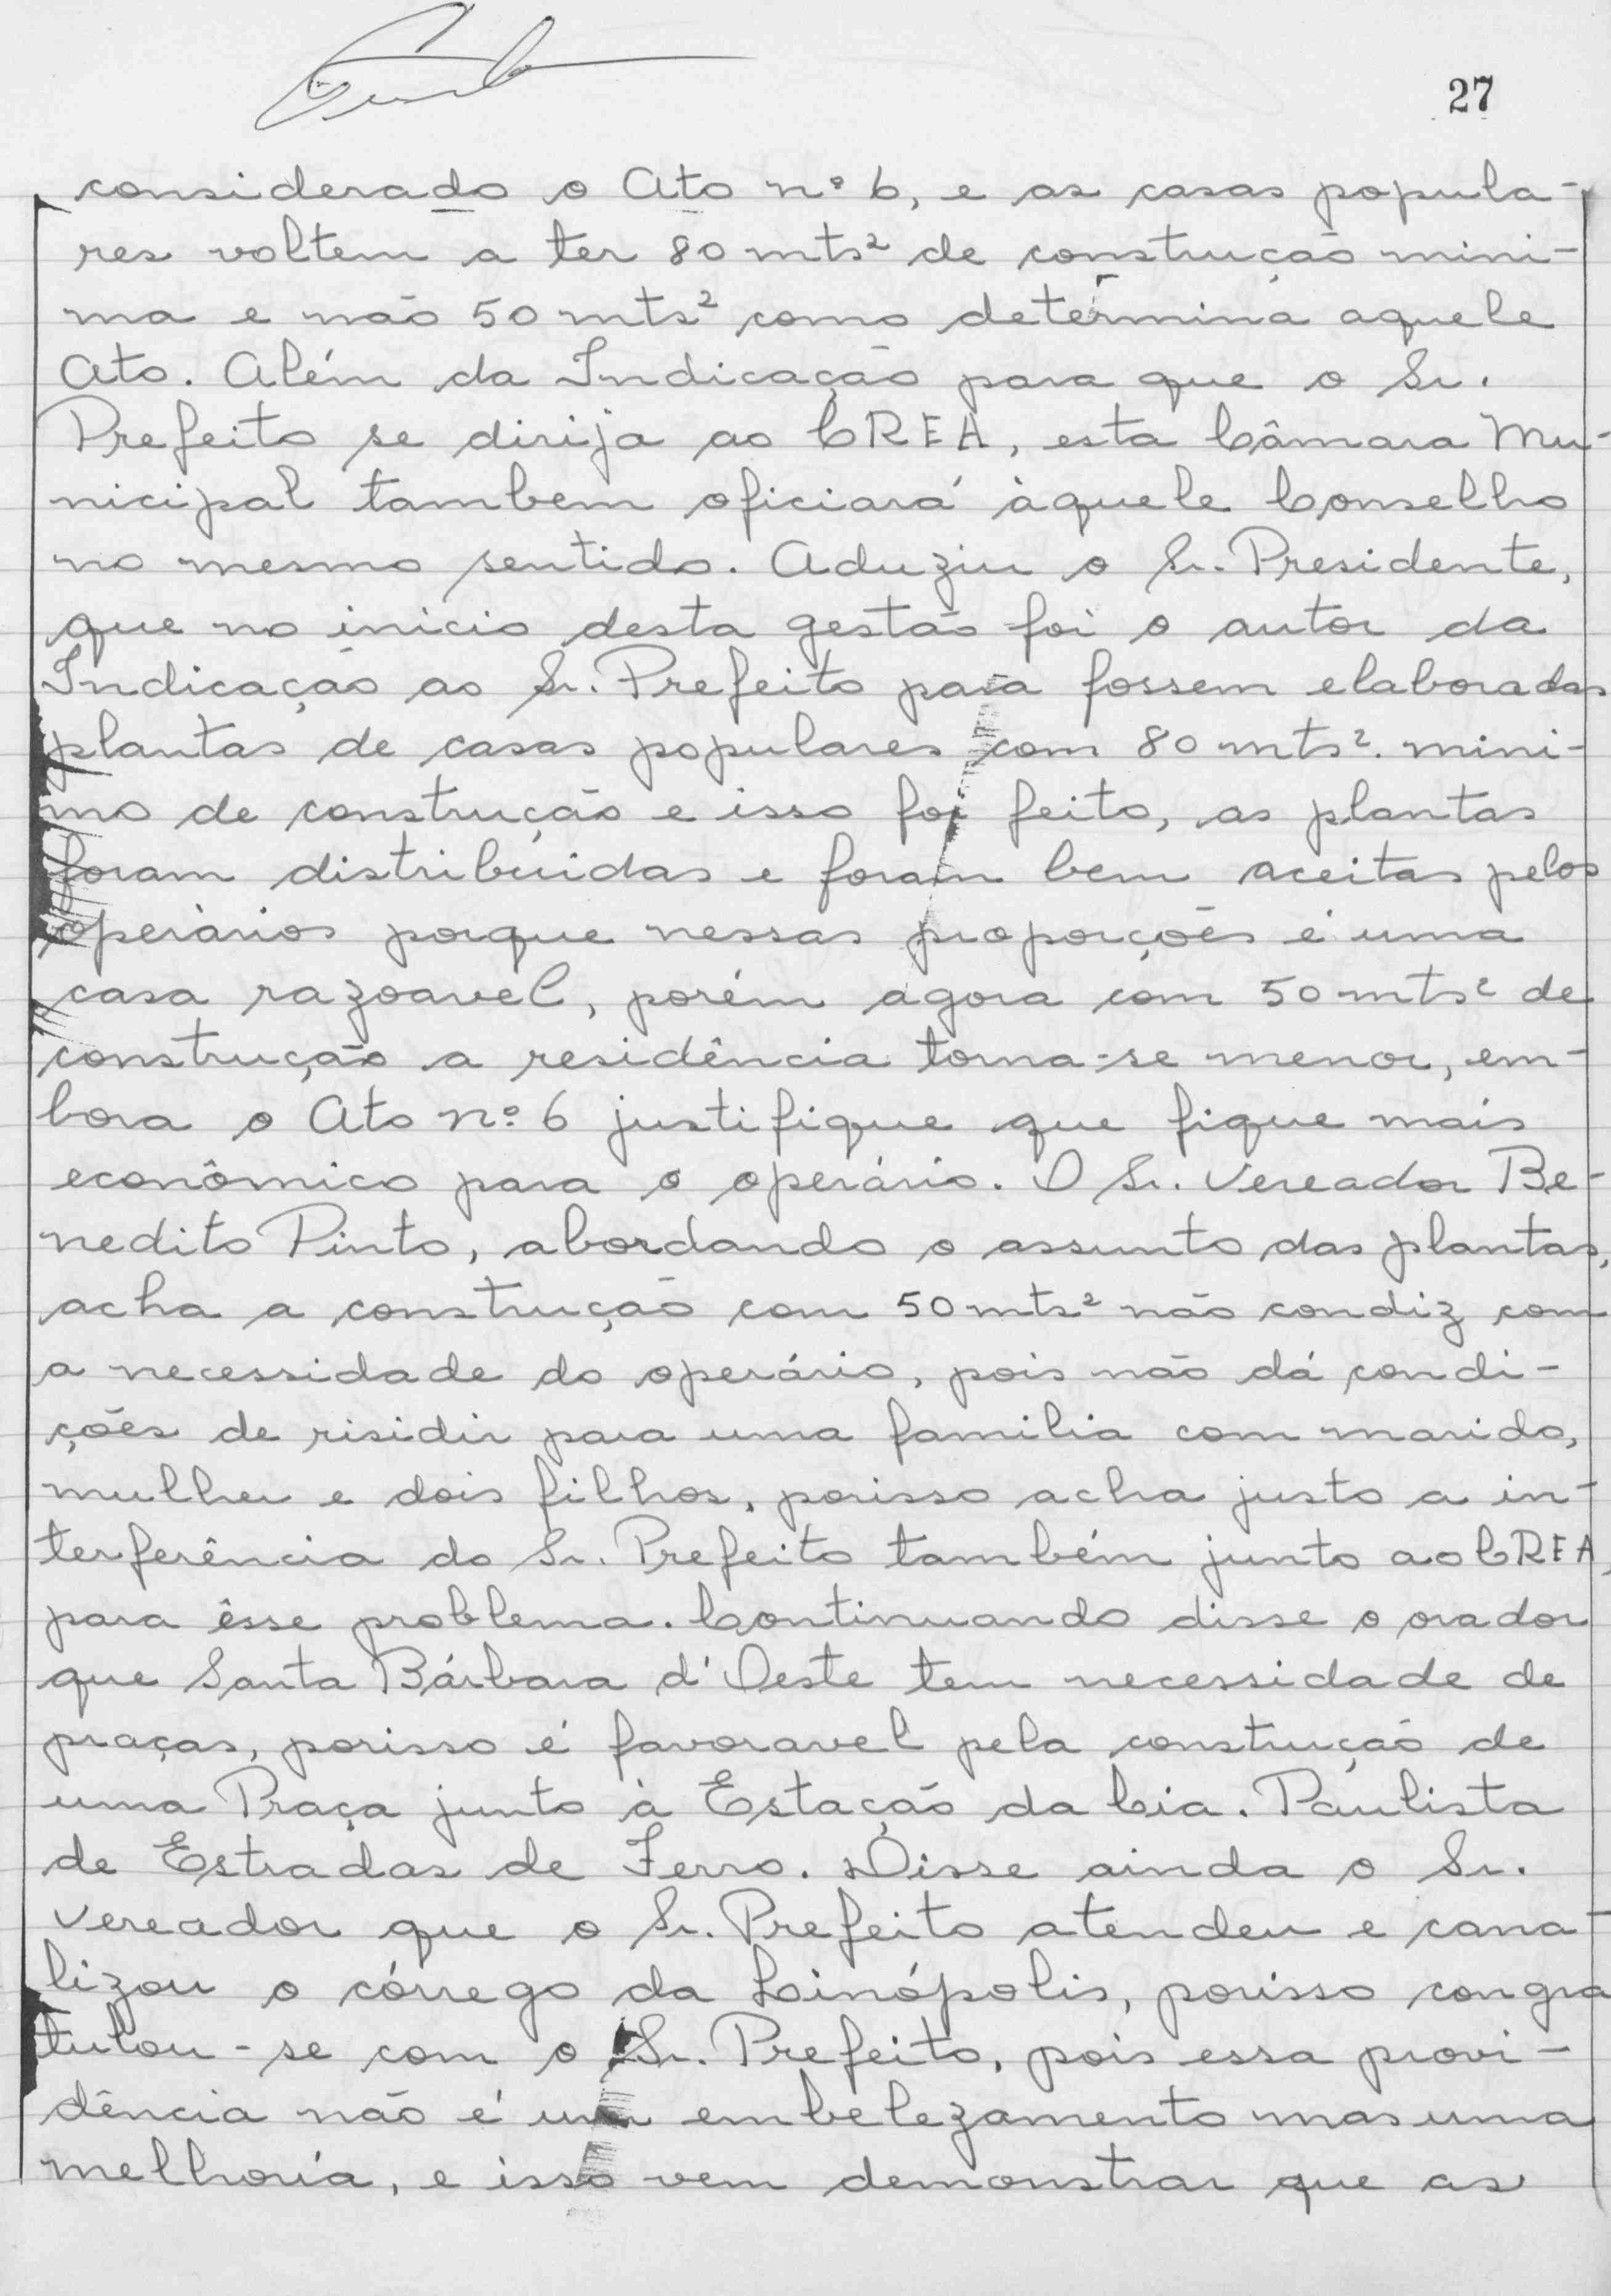 27
considerado o Ato nº 6, e as casas popula-
res voltem a ter 80 mts² de construção mini-
ma e não 50 mts² como determina aquele
Ato. Além da Indicação para que o Sr.
Prefeito se dirija ao CREA, esta Câmara Mu-
nicipal tambem oficiará àquele Conselho
no mesmo sentido. Aduziu o Sr. Presidente,
que no inicio desta gestão foi o autor da
Indicação ao Sr. Prefeito para fossem elaboradas
plantas de casas populares com 80 mts². mini-
mo de construção e isso foi feito, as plantas
foram distribuidas e foram bem aceitas pelos
operários porque nessas proporções é uma
casa razoavel, porém agora com 50 mts² de
construção a residência torna-se menor, em-
bora o Ato nº 6 justifique que fique mais
econômico para o operário. O Sr. Vereador Be-
nedito Pinto, abordando o assunto das plantas,
acha a construção com 50 mts² não condiz com
a necessidade do operário, pois não dá condi-
ções de risidir para uma familia com marido,
mulher e dois filhos, porisso acha justo a in-
terferência do Sr. Prefeito também junto ao CREA,
para êsse problema. Continuando disse o orador
que Santa Bárbara d'Oeste tem necessidade de
praças, porisso é favoravel pela construção de
uma Praça junto à Estação da Cia. Paulista
de Estradas de Ferro. Disse ainda o Sr.
Vereador que o Sr. Prefeito atendeu e cana-
lizou o córrego da Linópolis, porisso congra
tulou-se com o Sr. Prefeito, pois essa provi-
dência não é um embelezamento mas uma
melhoria, e isso vem demonstrar que as